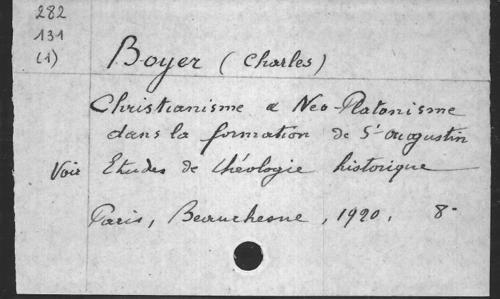 282
131
(1)
Boyer (Charles)
Christianisme & Neo-Platonisme
dans la formation de St Augustin
Voir Etudes de théologie historique
Paris, Beauchesne, 1920. 8°